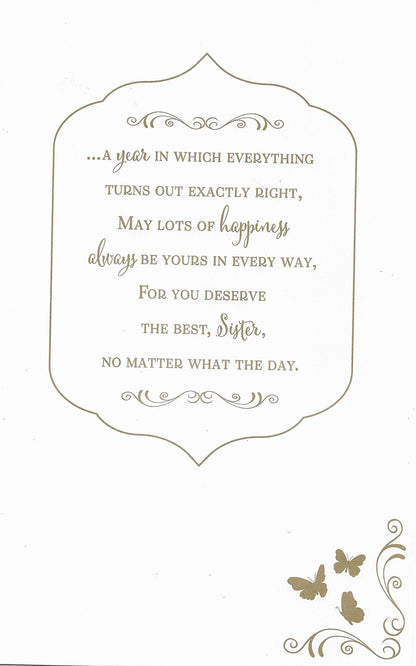 ...A year IN WHICH EVERYTHING
TURNS OUT EXACTLY RIGHT,
MAY LOTS OF happiness
always BE YOURS IN EVERY WAY,
FOR YOU DESERVE
THE BEST, Sister,
NO MATTER WHAT THE DAY.